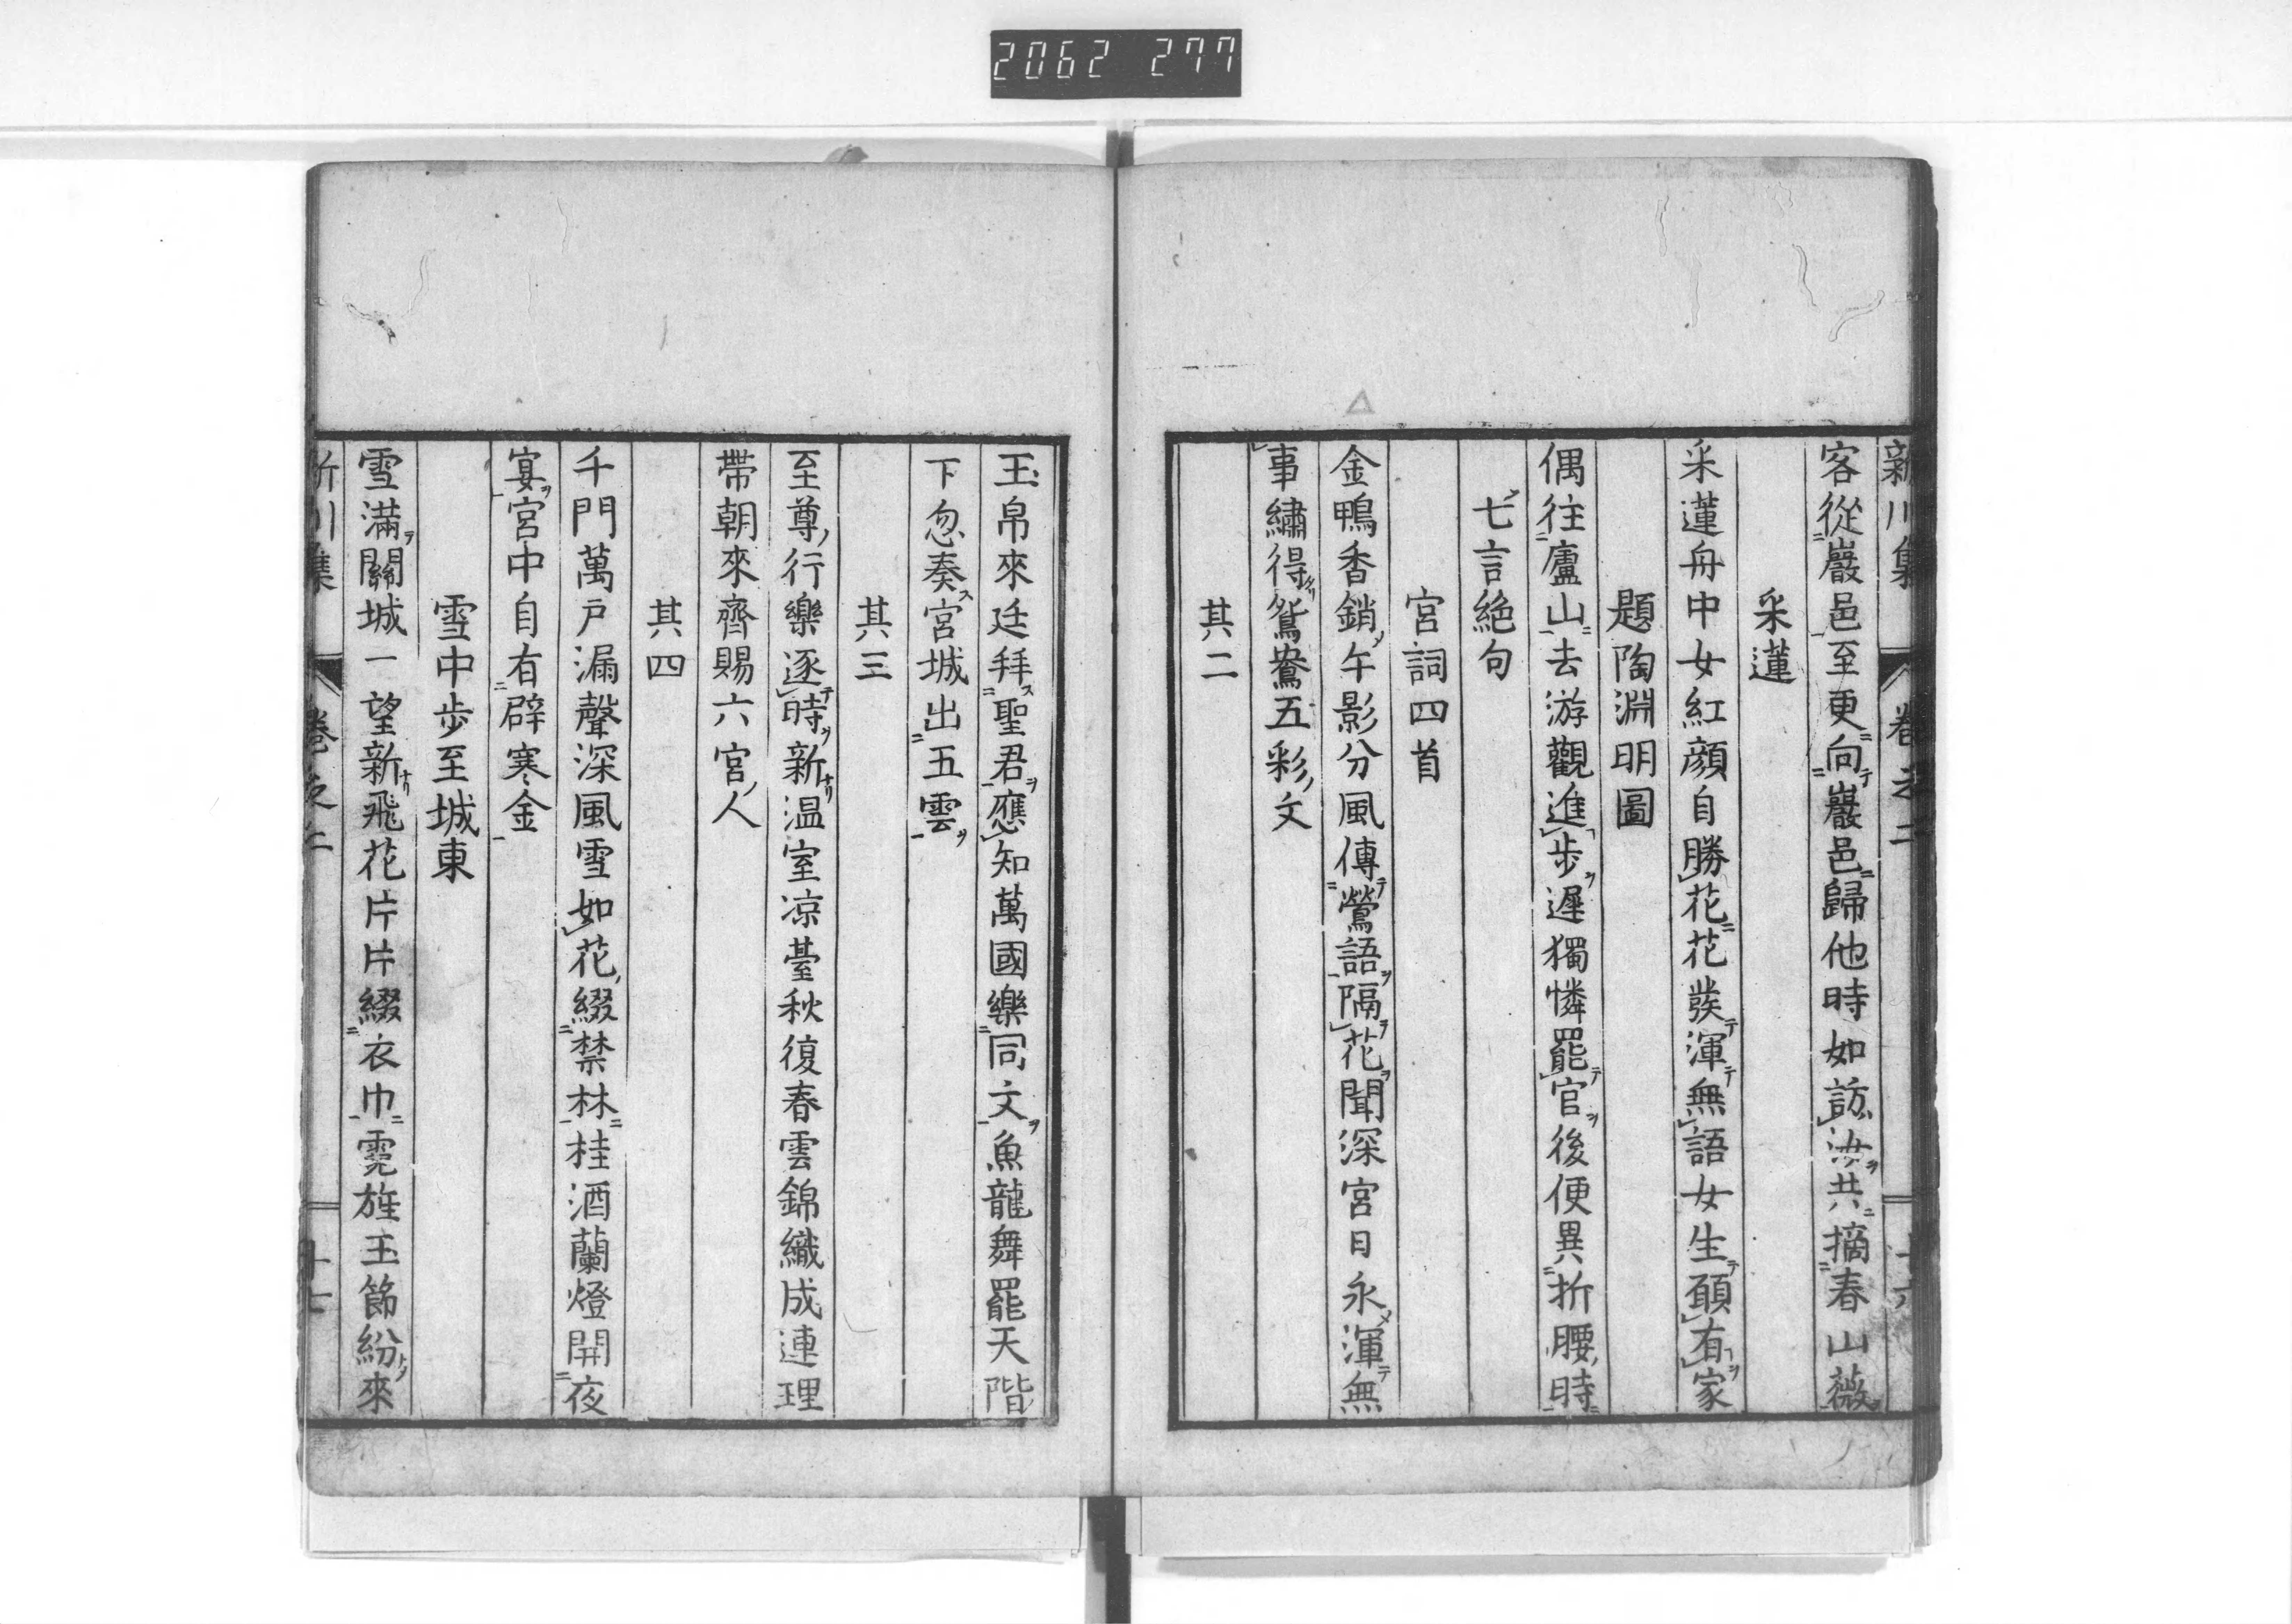 2062 277
新川集 卷之二 十六
客從巖邑至更向巖邑歸他時如訪汝共摘春山薇
采蓮
采蓮舟中女紅顔自勝花花發渾無語女生願有家
題陶淵明圖
偶往廬山去游觀進步遲獨憐罷官後便異折腰時
七言絶句
宮詞四首
金鴨香銷午影分風傳鶯語隔花聞深宮日永渾無
事繡得鴛鴦五彩文
其二
玉帛來廷拜聖君應知萬國樂同文魚龍舞罷天階
下忽奏宮城出五雲
其三
至尊行樂逐時新温室凉臺秋復春雲錦織成連理
帶朝來齊賜六宮人
其四
千門萬戸漏聲深風雪如花綴禁林桂酒蘭燈開夜
宴宮中自有辟寒金
雪中歩至城東
雪滿關城一望新飛花片片綴衣巾霓旌玉節紛來
新川集 卷之二 十七